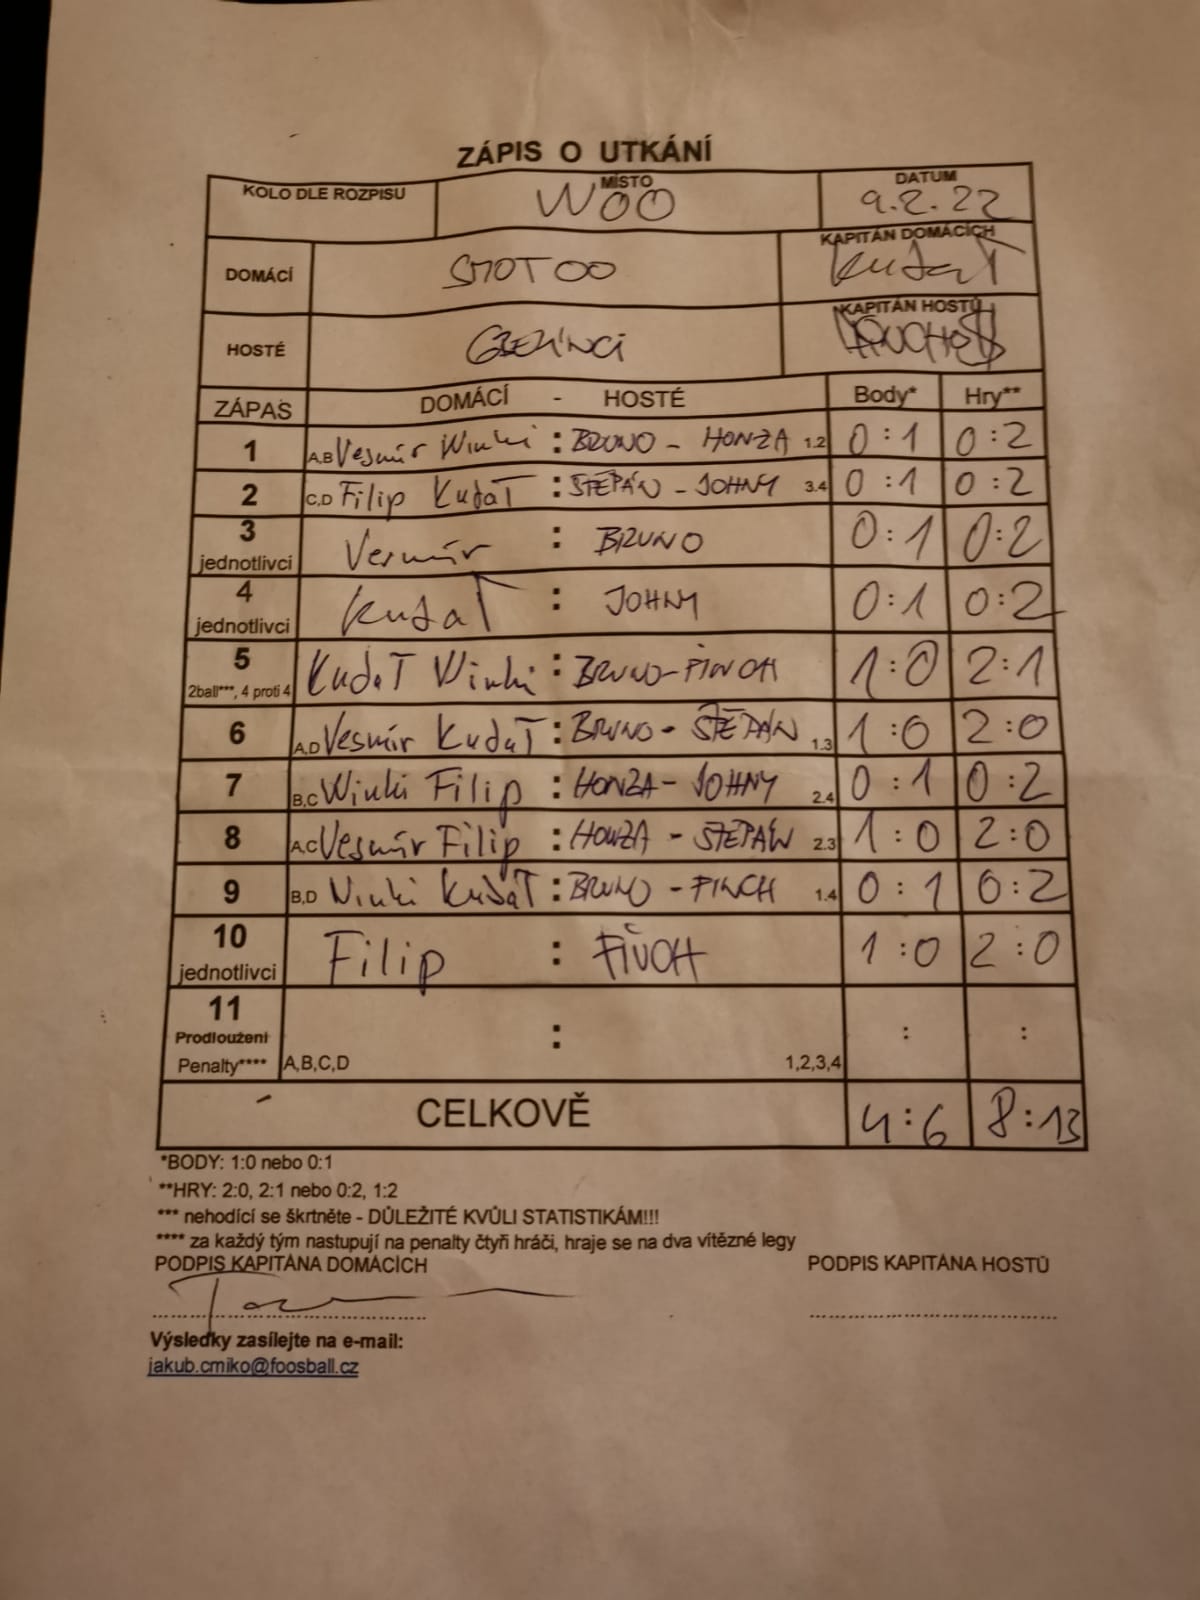 ZÁPIS O UTKÁNÍ
KOLO DLE ROZPISU MÍSTO WOO DATUM 9.2.22
DOMÁCÍ SMOTOO KAPITÁN DOMÁCÍCH Kudat
HOSTÉ KAPITÁN HOSTŮ
ZÁPAS DOMÁCÍ - HOSTÉ Body* Hry**
1 A,B Vesmír Winki : BRUNO - HONZA 1.2 0:1 0:2
2 C,D Filip Kudat : ŠTĚPÁN - JOHNY 3.4 0:1 0:2
3 jednotlivci Vesmír : BRUNO 0:1 0:2
4 jednotlivci Kudat : JOHNY 0:1 0:2
5 2ball***, 4 proti 4 Kudat Winki : BRUNO-FINCH 1:0 2:1
6 A,D Vesmír Kudat : BRUNO - ŠTĚPÁN 1.3 1:0 2:0
7 B,C Winki Filip : HONZA - JOHNY 2.4 0:1 0:2
8 A,C Vesmír Filip : HONZA - ŠTĚPÁN 2.3 1:0 2:0
9 B,D Winki Kudat : BRUNO - FINCH 1.4 0:1 0:2
10 jednotlivci Filip : FINCH 1:0 2:0
11 Prodloužení : : :
Penalty**** A,B,C,D 1,2,3,4
CELKOVĚ 4:6 8:13
*BODY: 1:0 nebo 0:1
**HRY: 2:0, 2:1 nebo 0:2, 1:2
*** nehodící se škrtněte - DŮLEŽITÉ KVŮLI STATISTIKÁM!!!
**** za každý tým nastupují na penalty čtyři hráči, hraje se na dva vítězné legy
PODPIS KAPITÁNA DOMÁCÍCH PODPIS KAPITÁNA HOSTŮ
Výsledky zasílejte na e-mail:
jakub.cmiko@foosball.cz